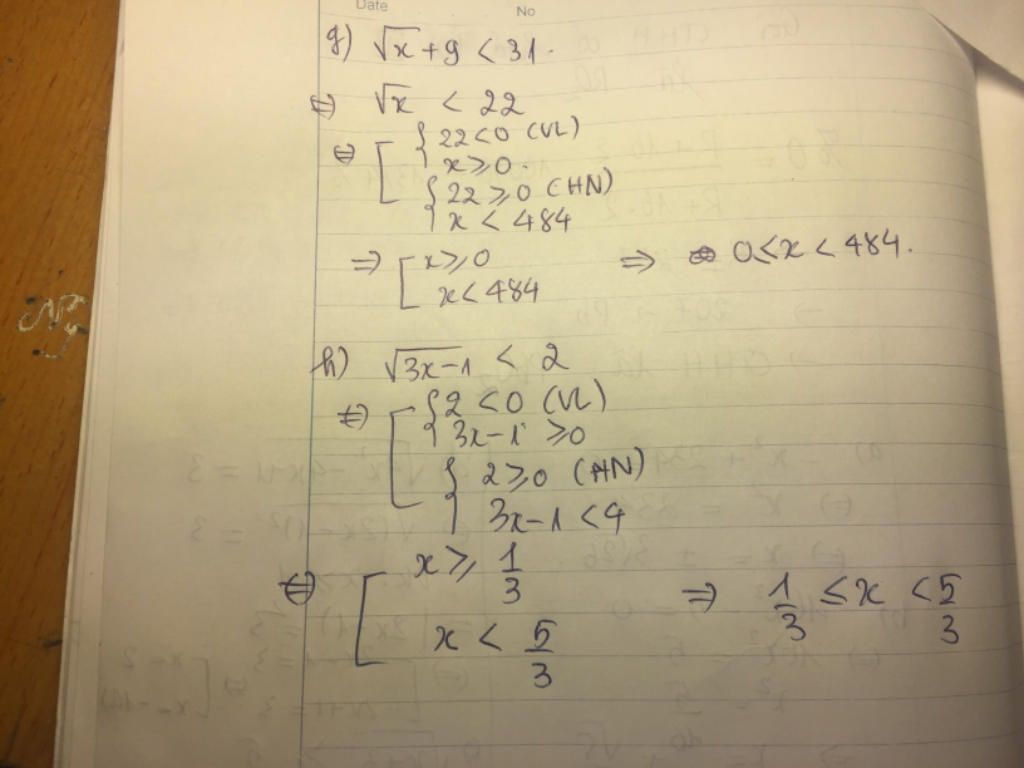 Date
No
g) √x + 9 < 31.
⇔ √x < 22
⇔ [ { 22 < 0 (VL)
x ≥ 0.
{ 22 ≥ 0 (HN)
x < 484
⇒ [ x ≥ 0 ⇒ 0 ≤ x < 484.
x < 484
h) √3x-1 < 2
⇔ [ { 2 < 0 (VL)
3x-1 ≥ 0
{ 2 ≥ 0 (HN)
3x-1 < 4
⇔ [ x ≥ 1/3 ⇒ 1/3 ≤ x < 5/3
x < 5/3